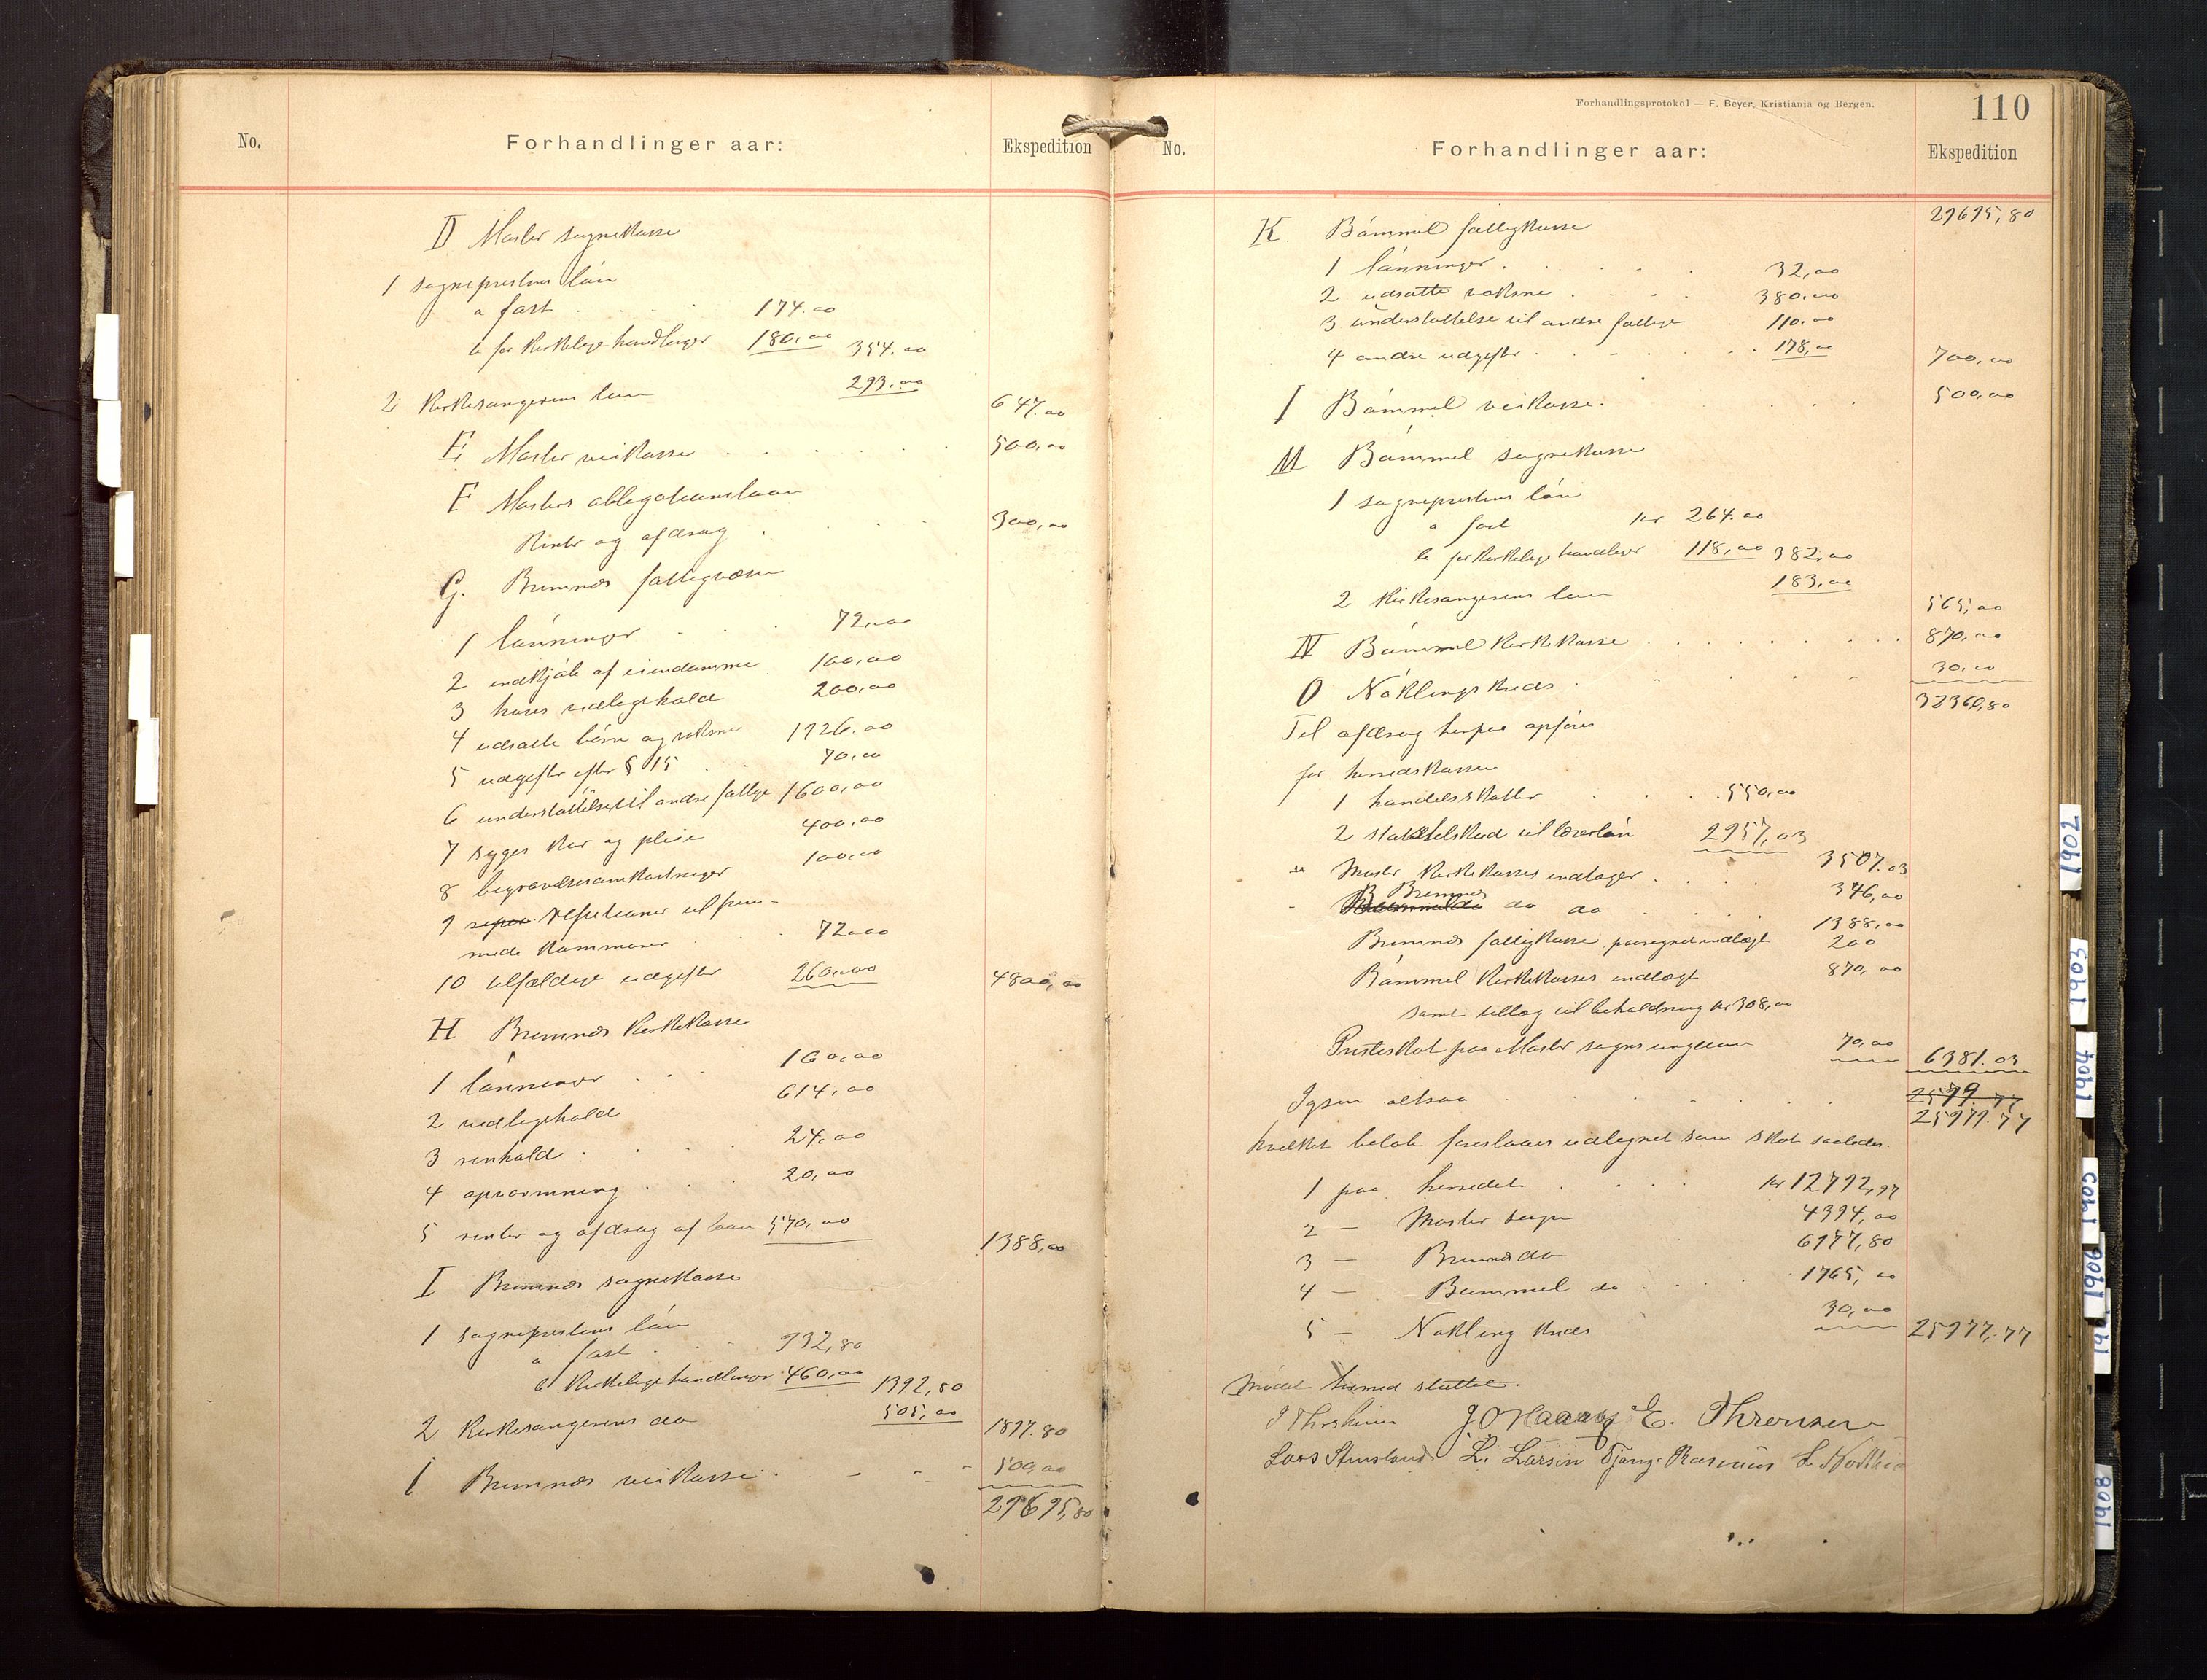 No.
Forhandlinger aar:
Ekspedition
D Moster sognekasse
1 sogneprestens løn
a fast . . . 174.00
b for kirkelige handlinger 180,00 354.00
2 kirkesangerens løn 293.00 647.00
E Moster veikasse . . . . . . 500,00
F Mosters obligationslaan
Renter og afdrag . . . . 300,00
G. Bremnes fattigvæsen
1 lønninger . . . 72,00
2 indkjøb af eiendomme 100,00
3 huses vedligehold 200,00
4 udsatte børn og voksne 1926.00
5 udgifter efter § 15 . 70,00
6 understøttelse til andre fattige 1600,00
7 syges kur og pleie 400.00
8 begravelsesomkostninger 100,00
9 refusioner til frem-
mede kommuner . . 72.00
10 tilfældige udgifter 260,00 4800,00
H Bremnes kirkekasse
1 lønninger . . . 160,00
2 vedligehold 614,00
3 renhold . . . . 24,00
4 opvarmning . . . 20,00
5 renter og afdrag af laan 570,00 1388,00
I Bremnes sognekasse
1 sogneprestens løn
a fast . . . 932,80
b kirkelige handlinger 460,00 1392,80
2 kirkesangerens do 505,00 1897.80
Bremnes veikasse . - - - 500,00
29695,80
110
Forhandlingsprotokol — F. Beyer, Kristiania og Bergen.
No.
Forhandlinger aar:
Ekspedition
29695,80
K. Bømmel fattigkasse
1 lønninger . . . . . 32,00
2 udsatte voksne . . . . 380,00
3 understøttelse til andre fattige 110,00
4 andre udgifter . . . . . . 178,00 700,00
Bømmel veikasse . . . . 500,00
M Bømmel sognekasse
1 sogneprestens løn
a fast kr 264.00
b for kirkelige handlinger 118,00 382,00
2 kirkesangerens løn 183,00 565,00
N Bømmel kirkekasse . . . . . . . 870,00
O Nøklings kreds . . . . 30,00
32360,80
Til afdrag herpaa opføres
for herredskassen
1 handelsskatter . . . . 550,00
2 statstilskud til lærerløn 2957,03 3507.03
" Moster kirkekasses indtægter . . . . 346,00
" Bremnes do do . . . . 1388,00
Bremnes fattigkasse, paaregnet indtægt 200
Bømmel kirkekasses indtægt 870,00
samt tillæg til beholdning kr 308,00
Presteskat paa Moster sogns 70,00 6381.03
Igjen altsaa . . . . . . 25979.77
hvilket beløb foreslaaes udlignet som skat saaledes.
1 paa herredet . . . . kr 12792,97
2 — Moster sogn 4394,00
3 — Bremnes do 6797,80
4 — Bømmel do . . . 1965,00
5 — Nøkling kreds 30,00 25979,77
Mødet hermed sluttet.
J O Haavig E. Thrensen
Lars Stensland L. Larsen Tjong. Rasmus
1902
1903
1904
1905
1906
1908